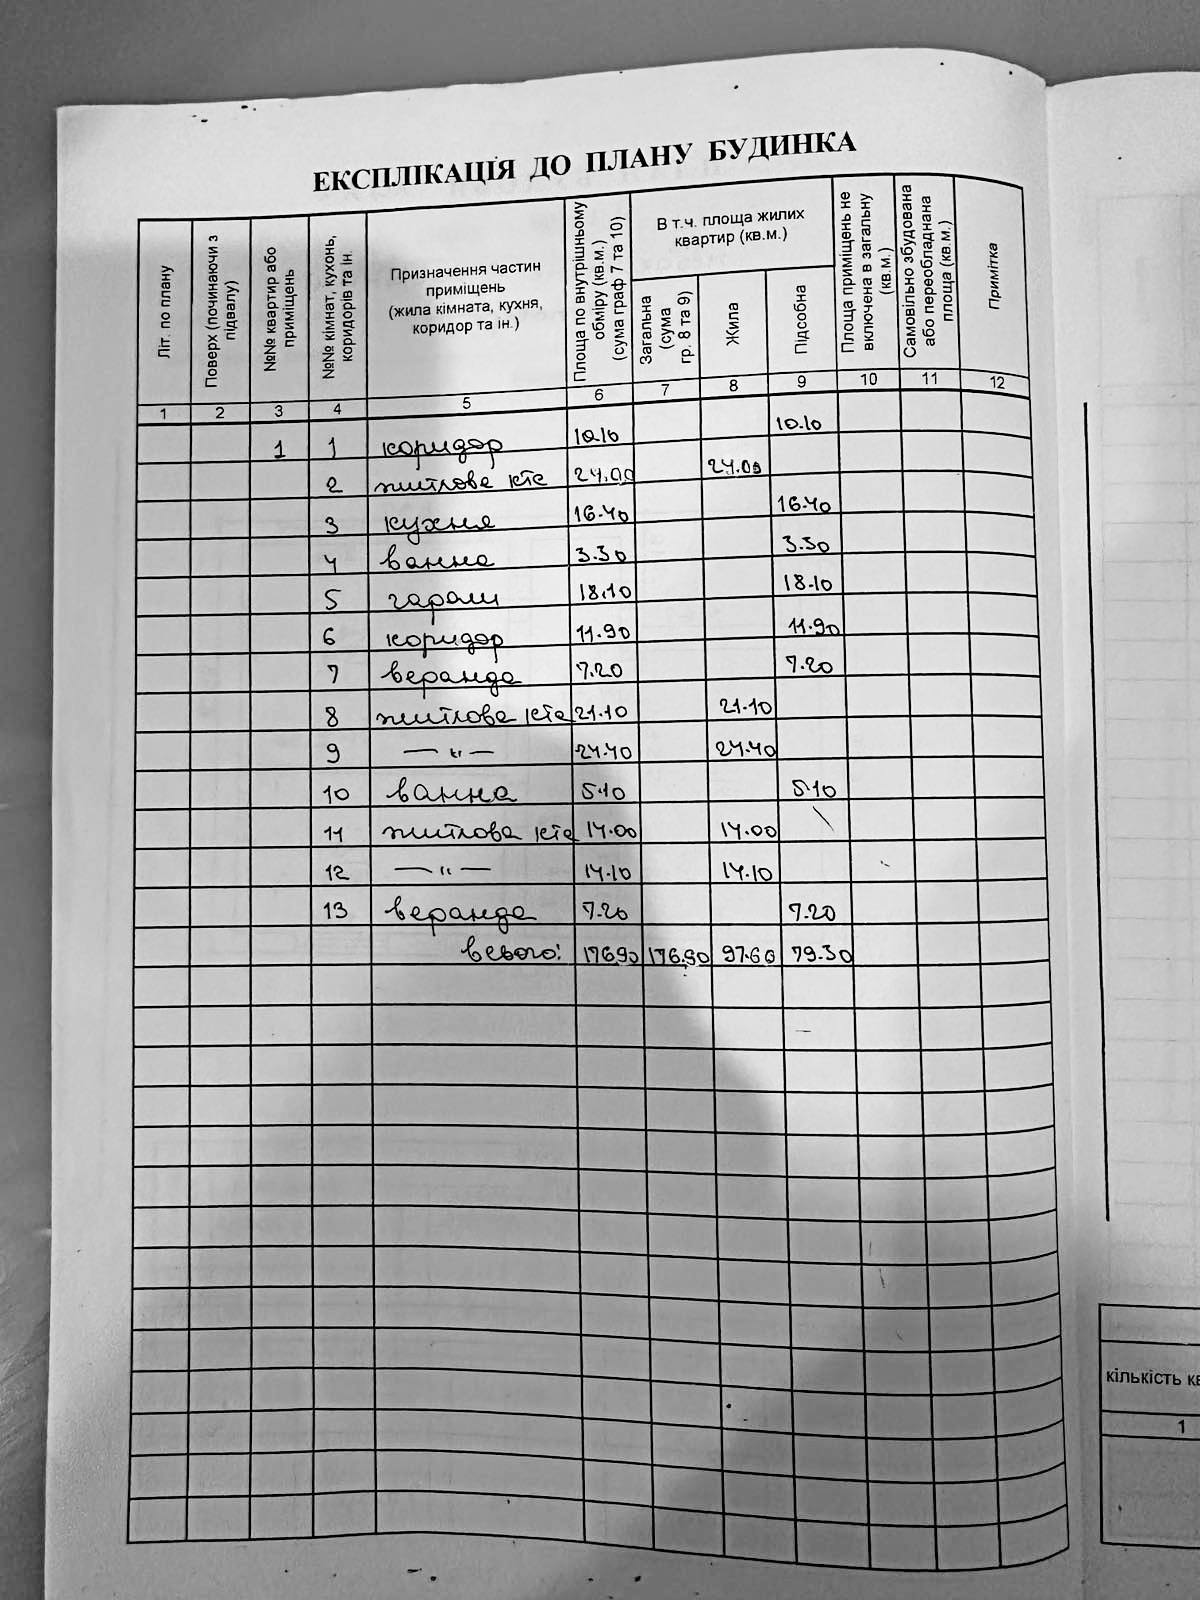 ЕКСПЛІКАЦІЯ ДО ПЛАНУ БУДИНКА
Літ. по плану
Поверх (починаючи з підвалу)
№№ квартир або приміщень
№№ кімнат, кухонь, коридорів та ін.
Призначення частин
приміщень
(жила кімната, кухня,
коридор та ін.)
Площа по внутрішньому
обміру (кв.м.)
(сума граф 7 та 10)
В т.ч. площа жилих
квартир (кв.м.)
Загальна
(сума
гр. 8 та 9)
Жила
Підсобна
Площа приміщень не
включена в загальну
(кв.м.)
Самовільно збудована
або переобладнана
площа (кв.м.)
Примітка
1 2 3 4 5 6 7 8 9 10 11 12
1 1 коридор 10.10 10.10
2 житлова кта 24.00 24.00
3 кухня 16.40 16.40
4 ванна 3.30 3.30
5 гараж 18.10 18.10
6 коридор 11.90 11.90
7 веранда 7.20 7.20
8 житлова кта 21.10 21.10
9 — " — 24.40 24.40
10 ванна 5.10 5.10
11 житлова кта 14.00 14.00
12 — " — 14.10 14.10
13 веранда 7.20 7.20
всього: 176.90 176.90 97.60 79.30
кількість кв
1